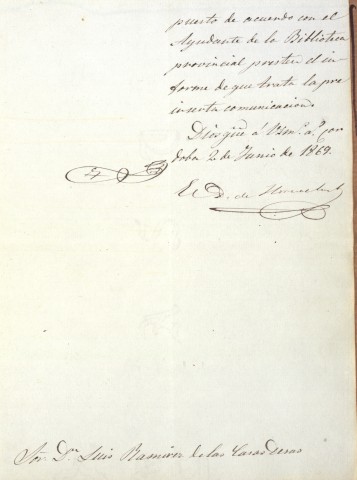 puesto de acuerdo con el
Ayudante de la Biblioteca
provincial presten el in-
forme de que trata la pre-
inserta comunicacion.
Dios gũe á Vm.s a.s Cor
doba 2 de Junio de 1869.
El D. de
Sor. Dn. Luis Ramirez de las Casas Deza